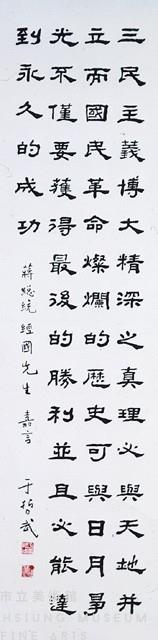 三民主義博大精深之真理必與天地并
立而國民革命燦爛的歷史可與日月爭
光不僅要獲得最後的勝利並且必能達
到永久的成功
蔣總統經國先生嘉言
市立美術館
HSIUNG MUSEUM
FINE ARTS